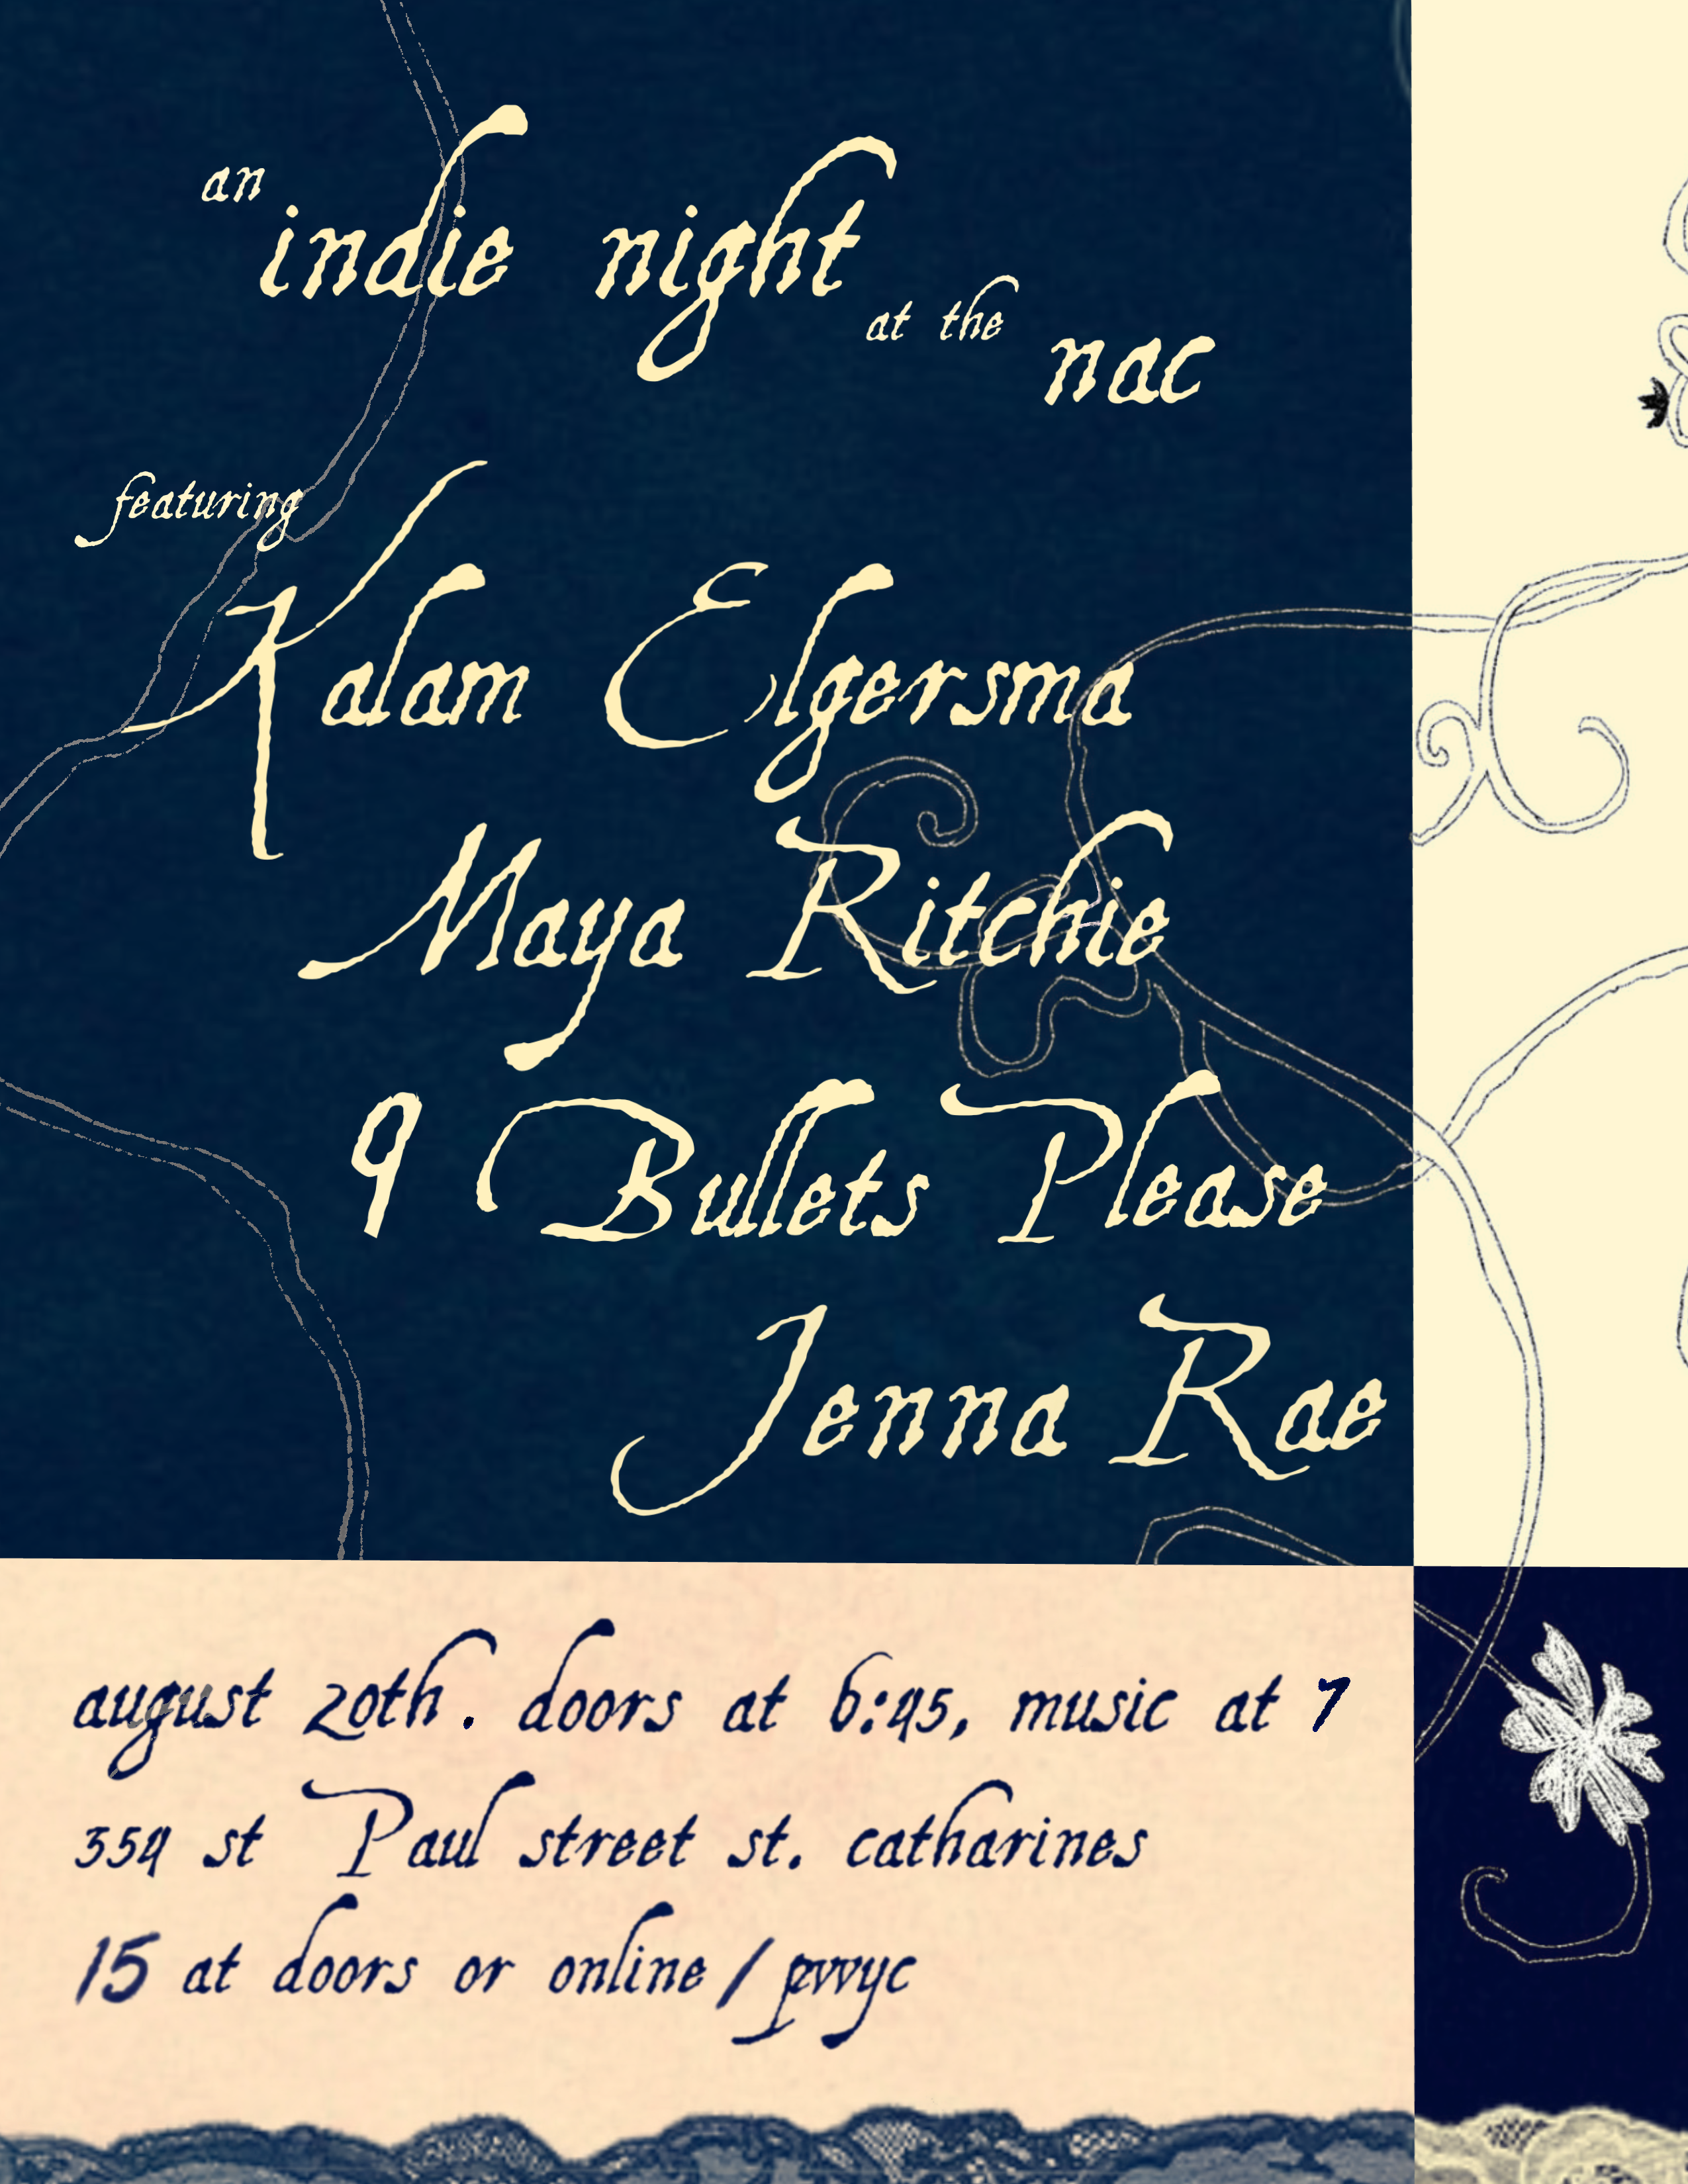 an
indie night
at the
nac
featuring
Kalam Elgersma
Maya Ritchie
9 Bullets Please
Jenna Rae
august 20th. doors at 6:45, music at 7
354 st Paul street st. catharines
15 at doors or online / pwyc